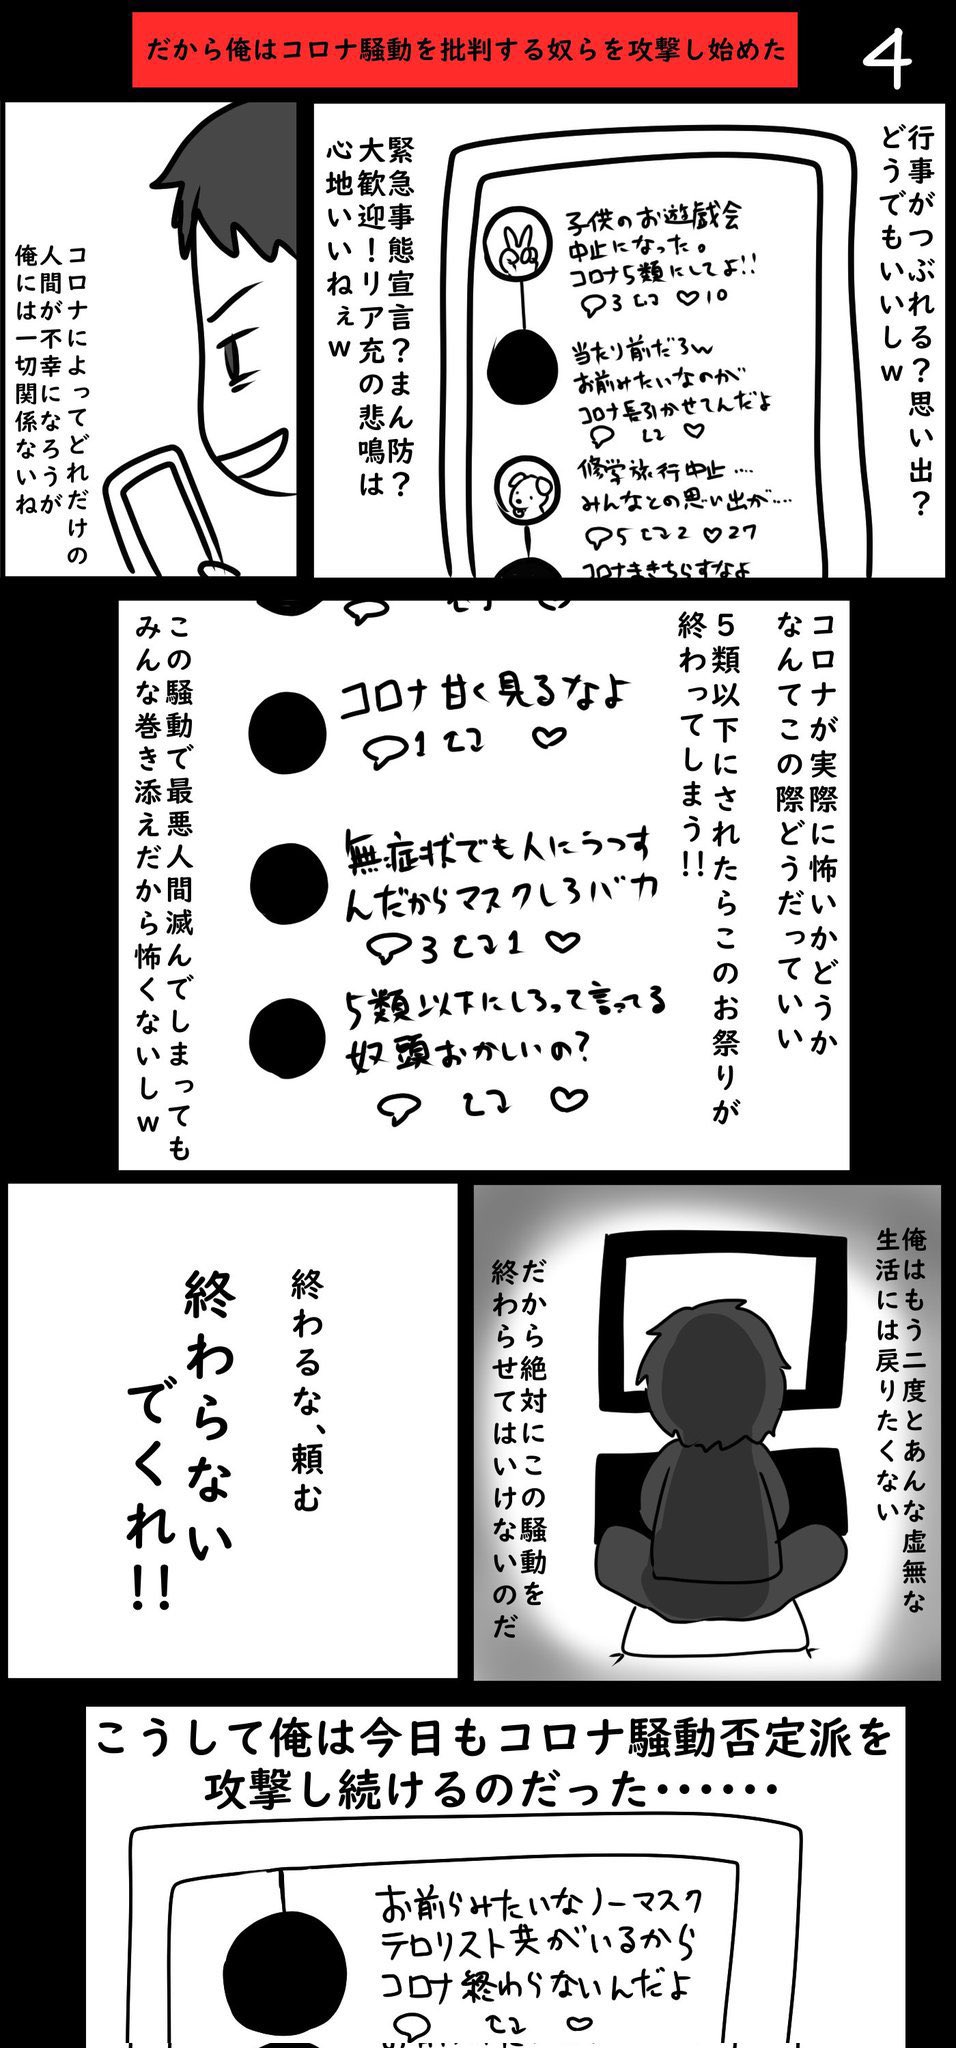 だから俺はコロナ騒動を批判する奴らを攻撃し始めた
4
行事がつぶれる？思い出？
どうでもいいしｗ
子供のお遊戯会
中止になった。
コロナ5類にしてよ!!
3
10
当たり前だろw
お前みたいなのが
コロナ長引かせてんだよ
修学旅行中止….
みんなとの思い出が….
5
2
27
コロナまきちらすなよ
緊急事態宣言？まん防？
大歓迎！リア充の悲鳴は
心地いいねぇｗ
コロナによってどれだけの
人間が不幸になろうが
俺には一切関係ないね
コロナが実際に怖いかどうか
なんてこの際どうだっていい
５類以下にされたらこのお祭りが
終わってしまう!!
コロナ甘く見るなよ
1
無症状でも人にうつす
んだからマスクしろバカ
3
1
5類以下にしろって言ってる
奴頭おかしいの?
この騒動で最悪人間滅んでしまっても
みんな巻き添えだから怖くないしｗ
俺はもう二度とあんな虚無な
生活には戻りたくない
だから絶対にこの騒動を
終わらせてはいけないのだ
終わるな、頼む
終わらない
でくれ!!
こうして俺は今日もコロナ騒動否定派を
攻撃し続けるのだった……
お前らみたいなノーマスク
テロリスト共がいるから
コロナ終わらないんだよ